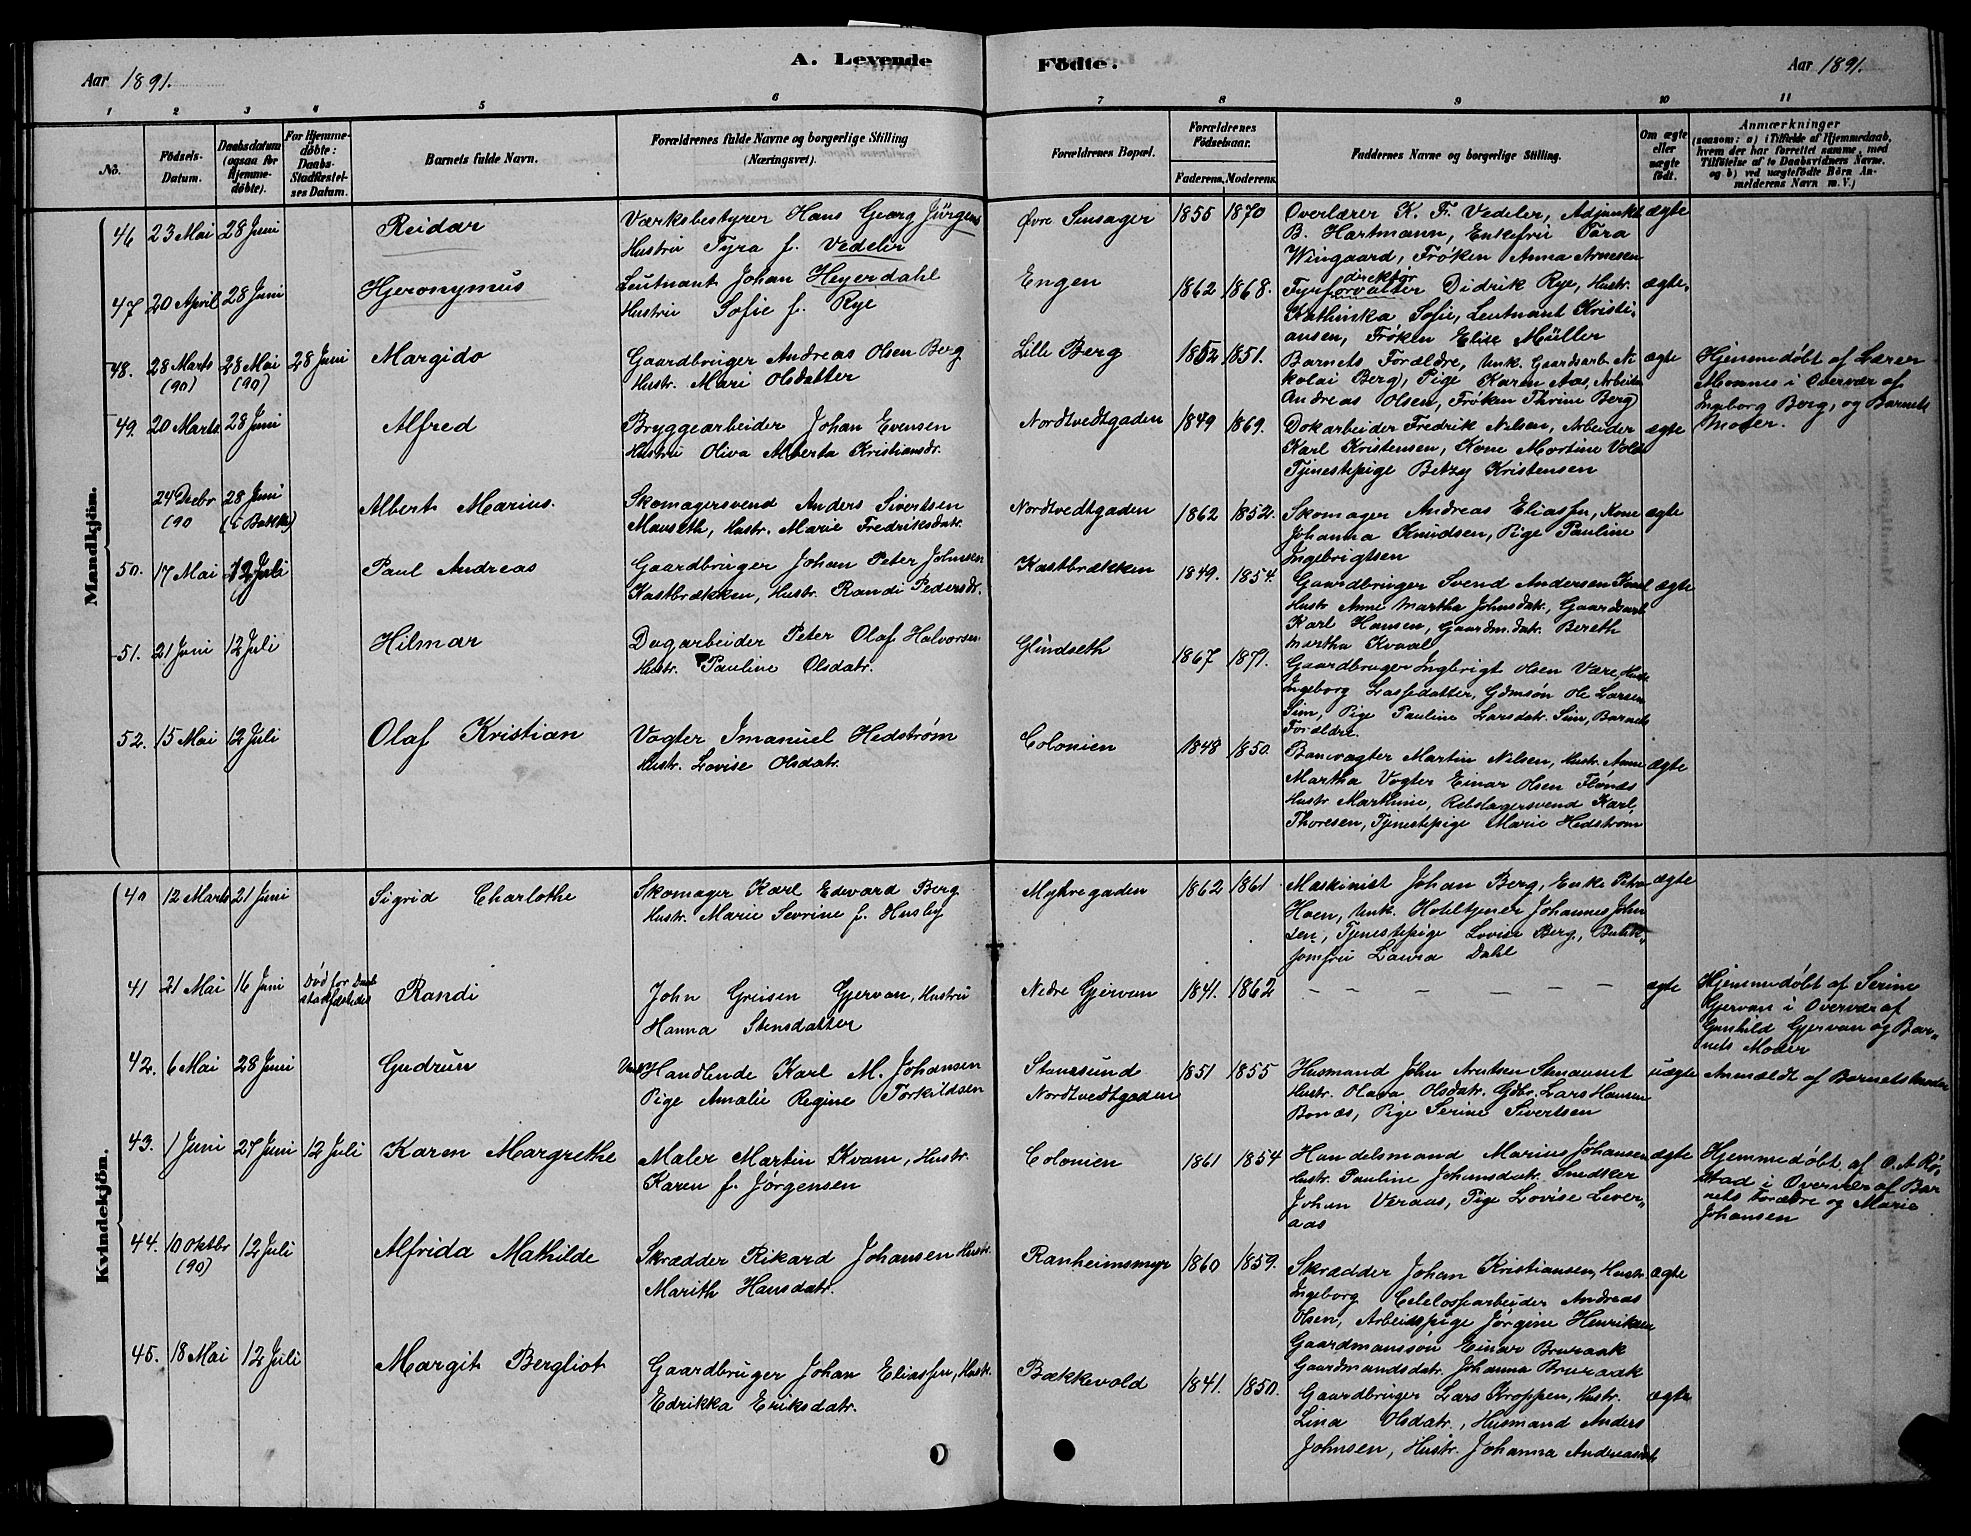 Aar 1891. A. Levende Födte. Aar 1891.
1 2 3 4 5 6 7 8 9 10 11
No.
Födsels-Datum.
Daabsdatum (ogsaa for Hjemme-döbte).
For Hjemme-döbte: Daabs-Stadfæstel-ses Datum.
Barnets fulde Navn.
Forældrenes fulde Navne og borgerlige Stilling (Næringsvei).
Forældrenes Bopæl.
Forældrenes Födselsaar.
Faderens. Moderens.
Faddernes Navne og borgerlige Stilling.
Om ægte eller uægte födt.
Anmærkninger
(saasom: a) i Tilfælde af Hjemmedaab, hvem der har forrettet samme, med Tilföielse af to Daabsvidners Navne. og b) ved uægtefödte Börn An-melderens Navn m. V.)
Mandkjön.
46 23 Mai 28 Juni Reidar Værksbestyrer Hans Georg Jürgens Øvre 1855 1870 Overlærer K. F. Vedeler, Adjunkt ægte
Hustru Tyra f. Vedeler B. Hartmann, Enkefru Tora
Wingaard, Frøken Anna Arnesen
47 20 April 28 Juni Hjeronymus Leutnant Johan Heyerdahl Engen 1862 1868. Fyrforvalter direktør Didrik Rye, Hustr. ægte.
Hustru Sofie f. Rye Kathinka Sofie, Leutnant Kristi-
ansen, Frøken Elise Müller
48. 28 Marts (90) 28 Mai (90) 28 Juni Margido Gaardbruger Andreas Olsen Berg Lille Berg 1852 1851. Barnets Forældre, Unk. Gaardsarb. Ni ægte Hjemmedøbt af Lærer
Hustr. Mari Olsdatter kolai Berg, Pige Karen Aas, Arbeider i Overvær af
Andreas Olsen, Frøken Thrine Berg Ingeborg Berg, og Barnets
Moder.
49. 20 Marts 28 Juni Alfred Bryggearbeider Johan Evensen Nordtvedtgaden 1849 1869. Dokarbeider Fredrik Nilsen, Arbeider ægte
Hustru Oliva Alberta Kristiansdr. Karl Kristensen, Kone Martine Vold
Tjenestepige Betzy Kristensen
24 Decbr (90 28 Juni (i Bakke) Albert Marius. Skomagersvend Anders Sivertsen Nordtvedtgaden 1862 1852. Skomager Andreas Eliassen, Kone ægte
Hustr. Marie Fredriksdatr. Johanna Knudsen, Pige Pauline
Ingebrigtsen
50. 17 Mai 12 Juli Paul Andreas Gaardbruger Johan Peter Johnsen Kastbrækken 1849. 1854. Gaardbruger Svend Andersen ægte
Kastbrækken, Hustr. Randi Pedersdr. Hustr Anne Martha Johnsdatr.,
Karl Hansen, Gaardm.datr. Bereth
Martha Kvaal
51. 21 Juni 12 Juli Hilmar Dagarbeider Peter Olaf Halvorsen Glindseth 1867 1871. Gaardbruger Ingbrigt Olsen Være, Hustr
Hustr. Pauline Olsdatr. Ingeborg Lassedatter, Gdmsøn Ole Larsen
Sim, Pige Pauline Larsdatr. Sim, Barnets
Forældre.
52. 15 Mai 12 Juli Olaf Kristian Vogter Imanuel Hedstrøm Colonien 1848 1850. Banevogter Martin Nilsen, Hustr. Anne ægte
Hustr. Lovise Olsdatr. Martha Vogter Einar Olsen Flønes
Hustr Marthine, Rebslagersvend Karl
Thoresen, Tjenestepige Marie Hedstrøm
Kvindekjön.
40 12 Marts 21 Juni Sigrid Charlothe Skomager Karl Edevard Berg Myhregaden 1862 1861 Maskinist Johan Berg, Enke Petra ægte
Hustr. Marie Sevrine f. Husby Hoen, Unk. Hoteltjener Johannes John
sen, Tjenestepige Lovise Berg, Butik-
jomfru Laura Dahl
41 21 Mai 16 Juni Død før Daab stadfæstedes Randi John Gjervan, Hustru Nedre Gjervan 1841. 1862 — — — — — — ægte Hjemmedøbt af Serine
Hanna Stensdatter Gjervan i Overvær af
Gunhild Gjervan og Bar-
nets Moder
42. 6 Mai 28 Juni Gudrun Handlende Karl M. Johansen Stenesund 1851 1855 Husmand John Arntsen uægte Anmeldt af Barnets Moder
Pige Amalie Regine Torkildsen Nordtvedtgaden Hustr. Olava Olsdatr. Gdbr. Lars Hansen
Bonæs, Pige Serine Sivertsen
43. 1 Juni 27 Juni 12 Juli Karen Margrethe Maler Martin Kvam, Hustr. Colonien 1861 1854 Handelsmand Marius Johansen ægte Hjemmedøbt af O. A Rø-
Karen f. Jørgensen Hustr. Pauline Johansdatr. Snedker stad i Overvær af Bar
Johan Veraas, Pige Lovise Lever- nets Forældre og Marie
aas Johansen
44. 10 Oktbr (90) 12 Juli Alfrida Mathilde Skrædder Rikard Johansen Hustr. Ranheimsmyr 1860 1859. Skrædder Johan Kristiansen, Hustr ægte
Marith Hansdatr. Ingeborg Celelosearbeider Andreas
Olsen, Arbeidspige Jørgine Henriksen
Gaardmanssøn Einar Bruraak
Gaardmandsdatr. Johanna Bruraak
45. 18 Mai 12 Juli Margit Bergliot Gaardbruger Johan Eliassen, Hustr. Bækkevold 1841. 1850. Gaardbruger Lars Kroppen, Hustr. ægte
Edrikka Eriksdatr. Lina Olsdatr., Husmand Anders
Johnsen, Hustr. Johanna Andreasdatr